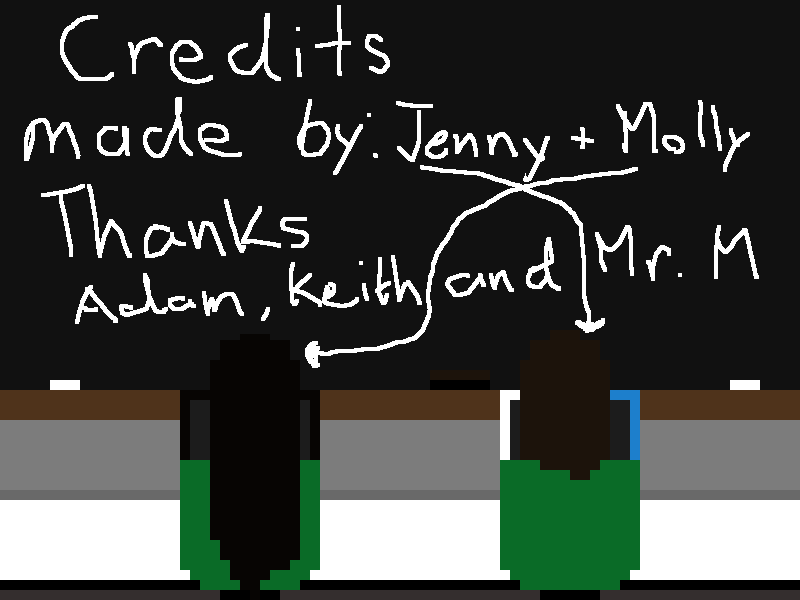 Credits
made by: Jenny + Molly
Thanks
Adam, Keith and Mr. M